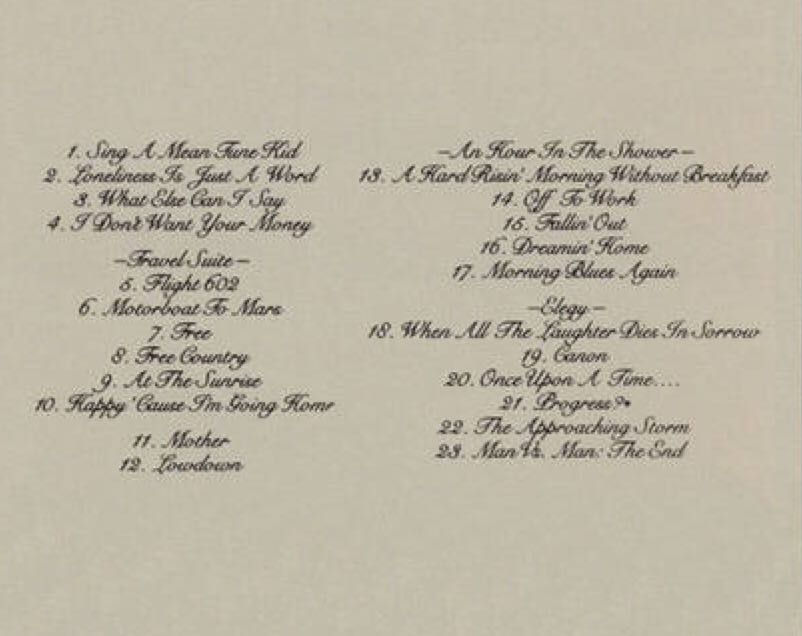 1. Sing A Mean Tune Kid
2. Loneliness Is Just A Word
3. What Else Can I Say
4. I Don't Want Your Money
—Travel Suite—
5. Flight 602
6. Motorboat To Mars
7. Free
8. Free Country
9. At The Sunrise
10. Happy 'Cause I'm Going Homr
11. Mother
12. Lowdown
—An Hour In The Shower—
13. A Hard Risin' Morning Without Breakfast
14. Off To Work
15. Fallin' Out
16. Dreamin' Home
17. Morning Blues Again
—Elegy—
18. When All The Laughter Dies In Sorrow
19. Canon
20. Once Upon A Time....
21. Progress?
22. The Approaching Storm
23. Man Vs. Man: The End